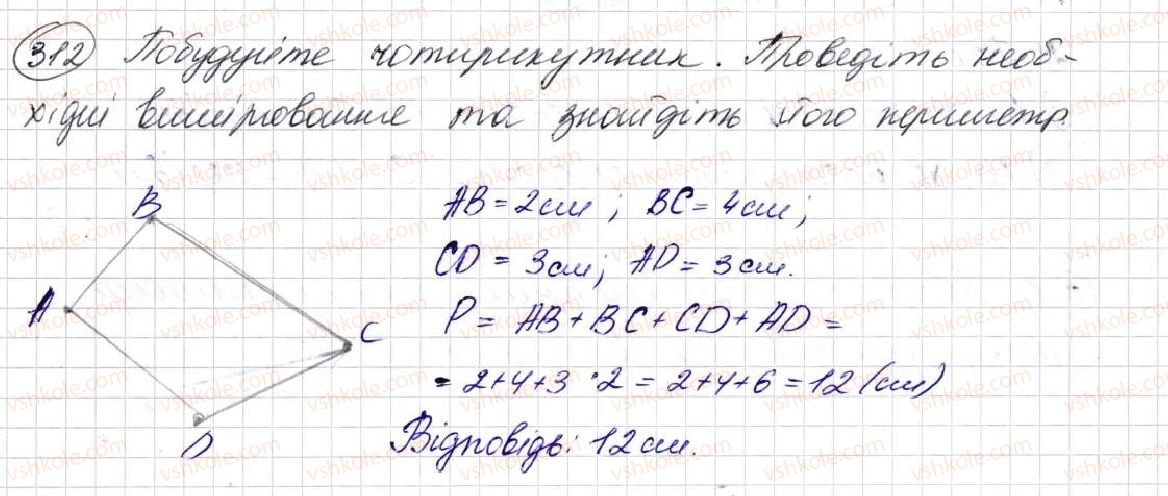 312 Побудуйте чотирикутник. Проведіть необ-
хідні вимірювання та знайдіть його периметр.
B
A
C
D
AB = 2 см ; BC = 4 см;
CD = 3 см; AD = 3 см.
P = AB + BC + CD + AD =
= 2 + 4 + 3 · 2 = 2 + 4 + 6 = 12 (см)
Відповідь: 12 см.
vshkole.com